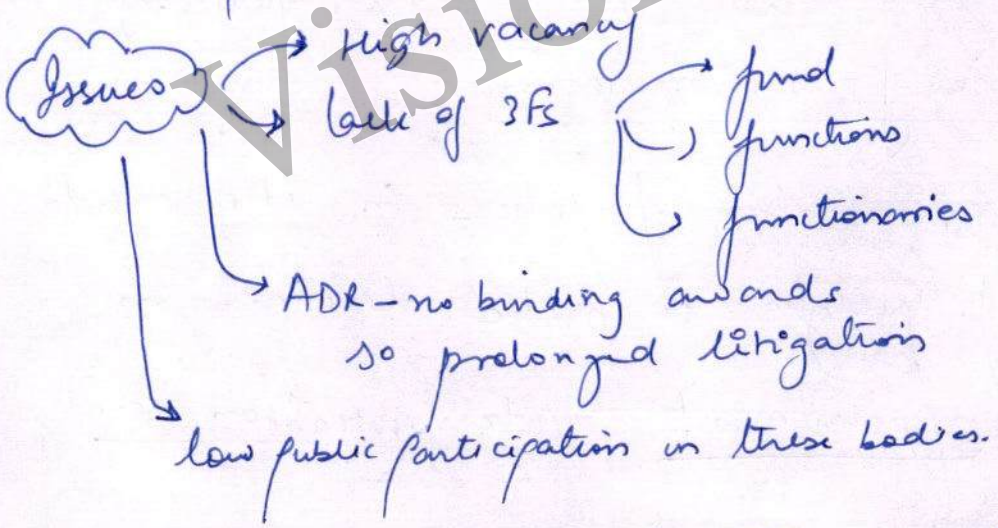 Issues
High vacancy
lack of 3Fs
fund
functions
functionaries
ADR - no binding awards
so prolonged litigation
low public participation in these bodies.
Vision